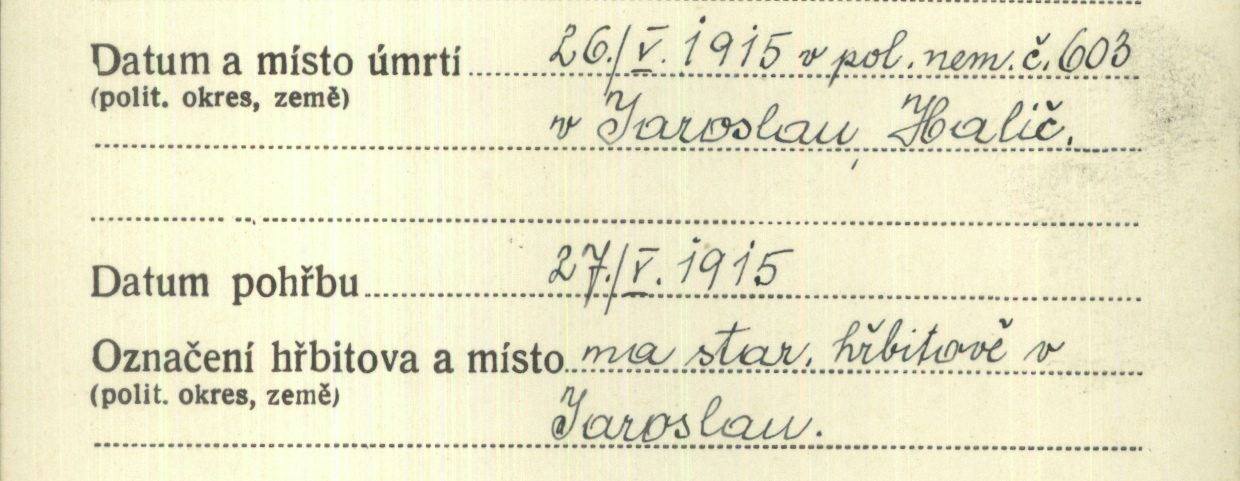 Datum a místo úmrtí 26./V. 1915 v pol. nem. č. 603
(polit. okres, země)
v Jaroslau, Halič.
Datum pohřbu 27./V. 1915
Označení hřbitova a místo na star. hřbitově v
(polit. okres, země)
Jaroslau.